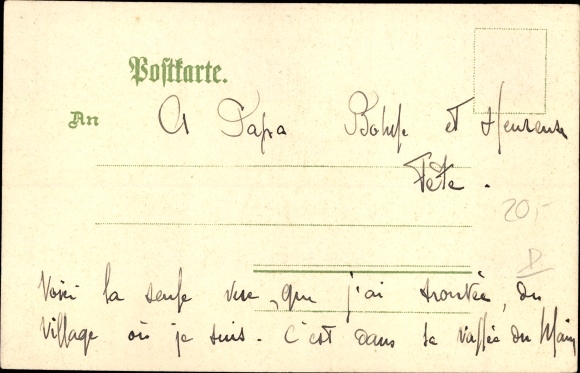 Postkarte.
An
A Papa Bonne et Heureuse
Fête.
20,-
D
Voici la seule vue, que j'ai trouvée, du
Village où je suis. C'est dans la vallée du Main